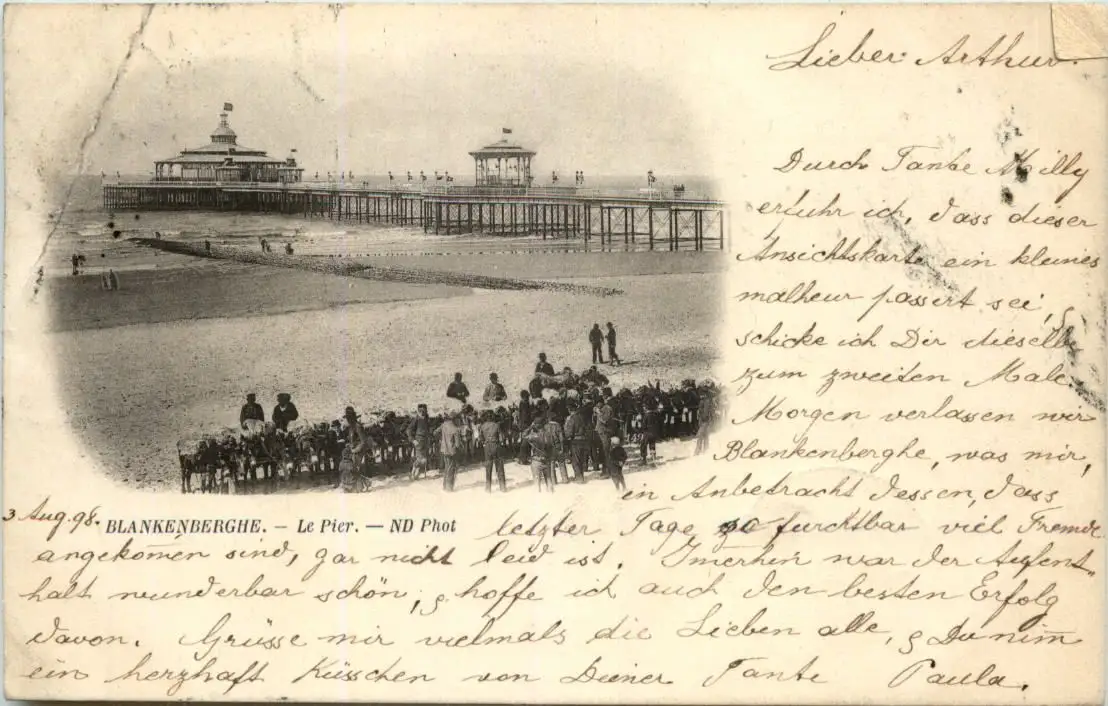 Lieber Arthur.
Durch Tante Milly
erfuhr ich, dass dieser
Ansichtskarte ein kleines
malheur passiert sei,
schicke ich Dir dieselbe
zum zweiten Male.
Morgen verlassen wir
Blankenberghe, was mir,
in Anbetracht dessen, dass
3 Aug. 98. BLANKENBERGHE. — Le Pier. — ND Phot
letzter Tage so furchtbar viel Fremde
angekomen sind, gar nicht leid ist. Imerhin war der Aufent-
halt wunderbar schön, & hoffe ich auch den besten Erfolg
davon. Grüsse mir vielmals die Lieben alle, & Du nim
ein herzhaft Küsschen von Deiner Tante Paula.